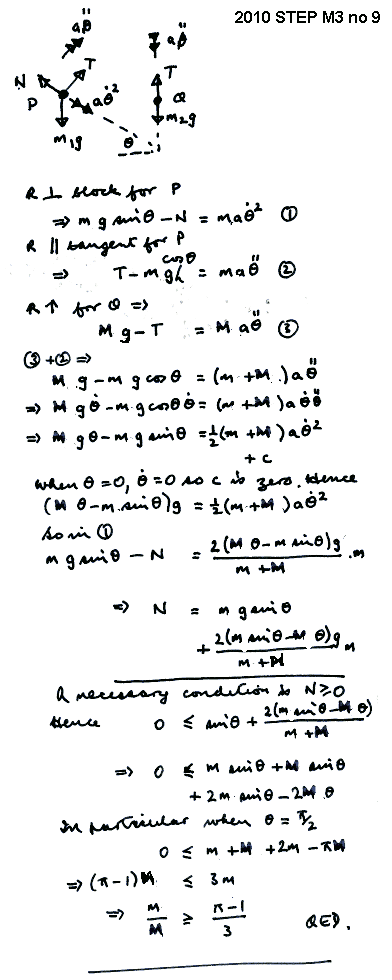 2010 STEP M3 no 9
aθ̈ aθ̈
N T T
P aθ̇² Q
m₁g θ m₂g
R ⊥ block for P
⇒ mg sinθ – N = maθ̇² ①
R ∥ tangent for P
⇒ T – mg cosθ = maθ̈ ②
R ↑ for Q ⇒
Mg – T = Maθ̈ ③
③ + ② ⇒
Mg – mg cosθ = (m + M)aθ̈
⇒ Mgθ̇ – mg cosθ θ̇ = (m + M)aθ̇θ̈
⇒ Mgθ – mg sinθ = ½(m + M)aθ̇²
+ c
when θ = 0, θ̇ = 0 so c is zero. Hence
(Mθ – m sinθ)g = ½(m + M)aθ̇²
So in ①
mg sinθ – N = 2(Mθ – m sinθ)g / (m + M) .m
⇒ N = mg sinθ
+ 2(m sinθ – Mθ)g / (m + M) m
A necessary condition is N ≥ 0
Hence 0 ≤ sinθ + 2(m sinθ – Mθ) / (m + M)
⇒ 0 ≤ m sinθ + M sinθ
+ 2m sinθ – 2Mθ
In particular when θ = π/2
0 ≤ m + M + 2m – πM
⇒ (π – 1)M ≤ 3m
⇒ m/M ≥ (π – 1)/3 QED.